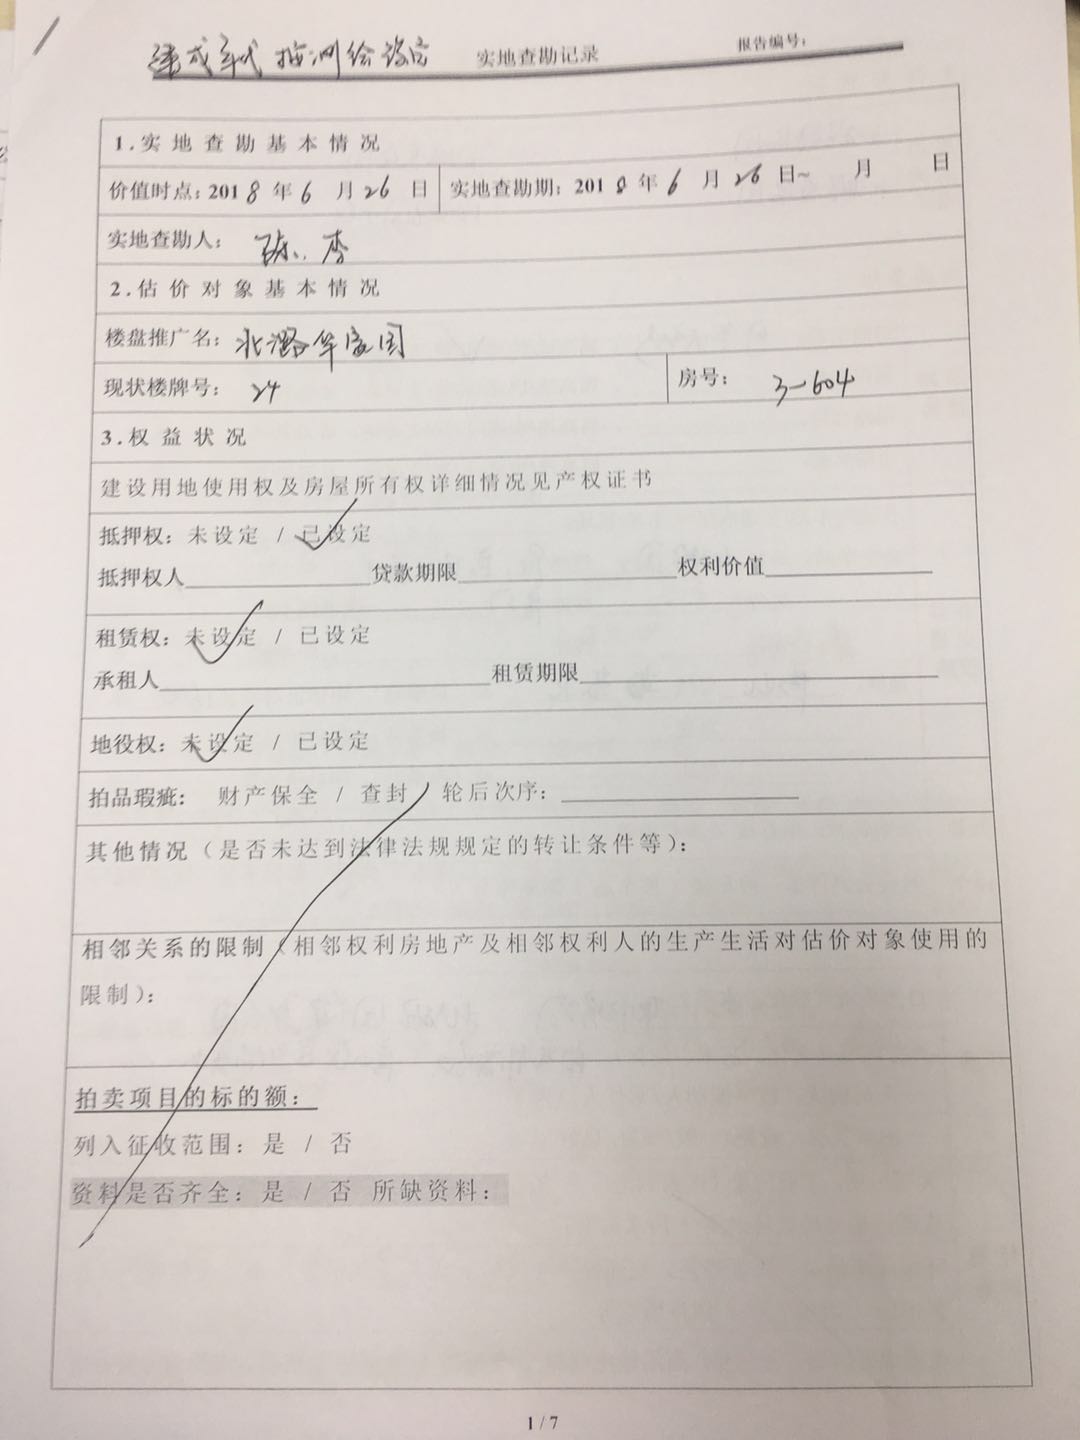 建成年代 按测绘设定 实地查勘记录 报告编号:
1.实地查勘基本情况
价值时点:2018年6月26日 实地查勘期:2018年6月26日~ 月 日
实地查勘人: 陈、李
2.估价对象基本情况
楼盘推广名: 北潞华家园
现状楼牌号: 24 房号: 3-604
3.权益状况
建设用地使用权及房屋所有权详细情况见产权证书
抵押权:未设定 / 已设定
抵押权人 贷款期限 权利价值
租赁权:未设定 / 已设定
承租人 租赁期限
地役权:未设定 / 已设定
拍品瑕疵: 财产保全 / 查封 轮后次序:
其他情况(是否未达到法律法规规定的转让条件等):
相邻关系的限制(相邻权利房地产及相邻权利人的生产生活对估价对象使用的
限制):
拍卖项目的标的额:
列入征收范围:是 / 否
资料是否齐全:是 / 否 所缺资料:
1 / 7